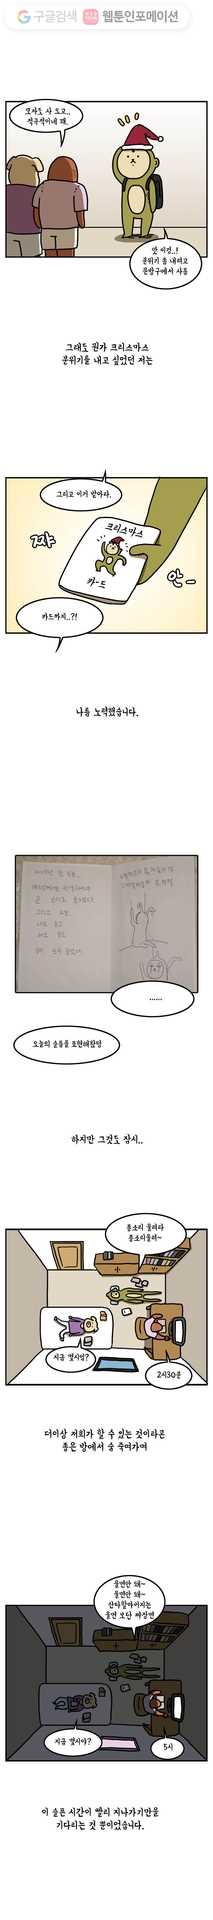 구글검색 웹툰인포메이션
모자도 사 오고..
적극적이네 쟤.
앗 이건..!
분위기 좀 내려고
문방구에서 사옴
그래도 뭔가 크리스마스
분위기를 내고 싶었던 저는
그리고 이거 받아라.
크리스마스
카-드
짜
안-
카드까지..?!
나름 노력했습니다.
......
오늘의 슬픔을 표현해봤엉
하지만 그것도 잠시..
종소리 울려라
종소리울려~
지금 몇시임?
2시30분
더이상 저희가 할 수 있는 것이라곤
좁은 방에서 숨 죽여가며
울면안 돼~
울면안 돼~
산타할아버지는
울면 보단 짜장면
지금 몇시야?
5시
이 슬픈 시간이 빨리 지나가기만을
기다리는 것 뿐이었습니다.